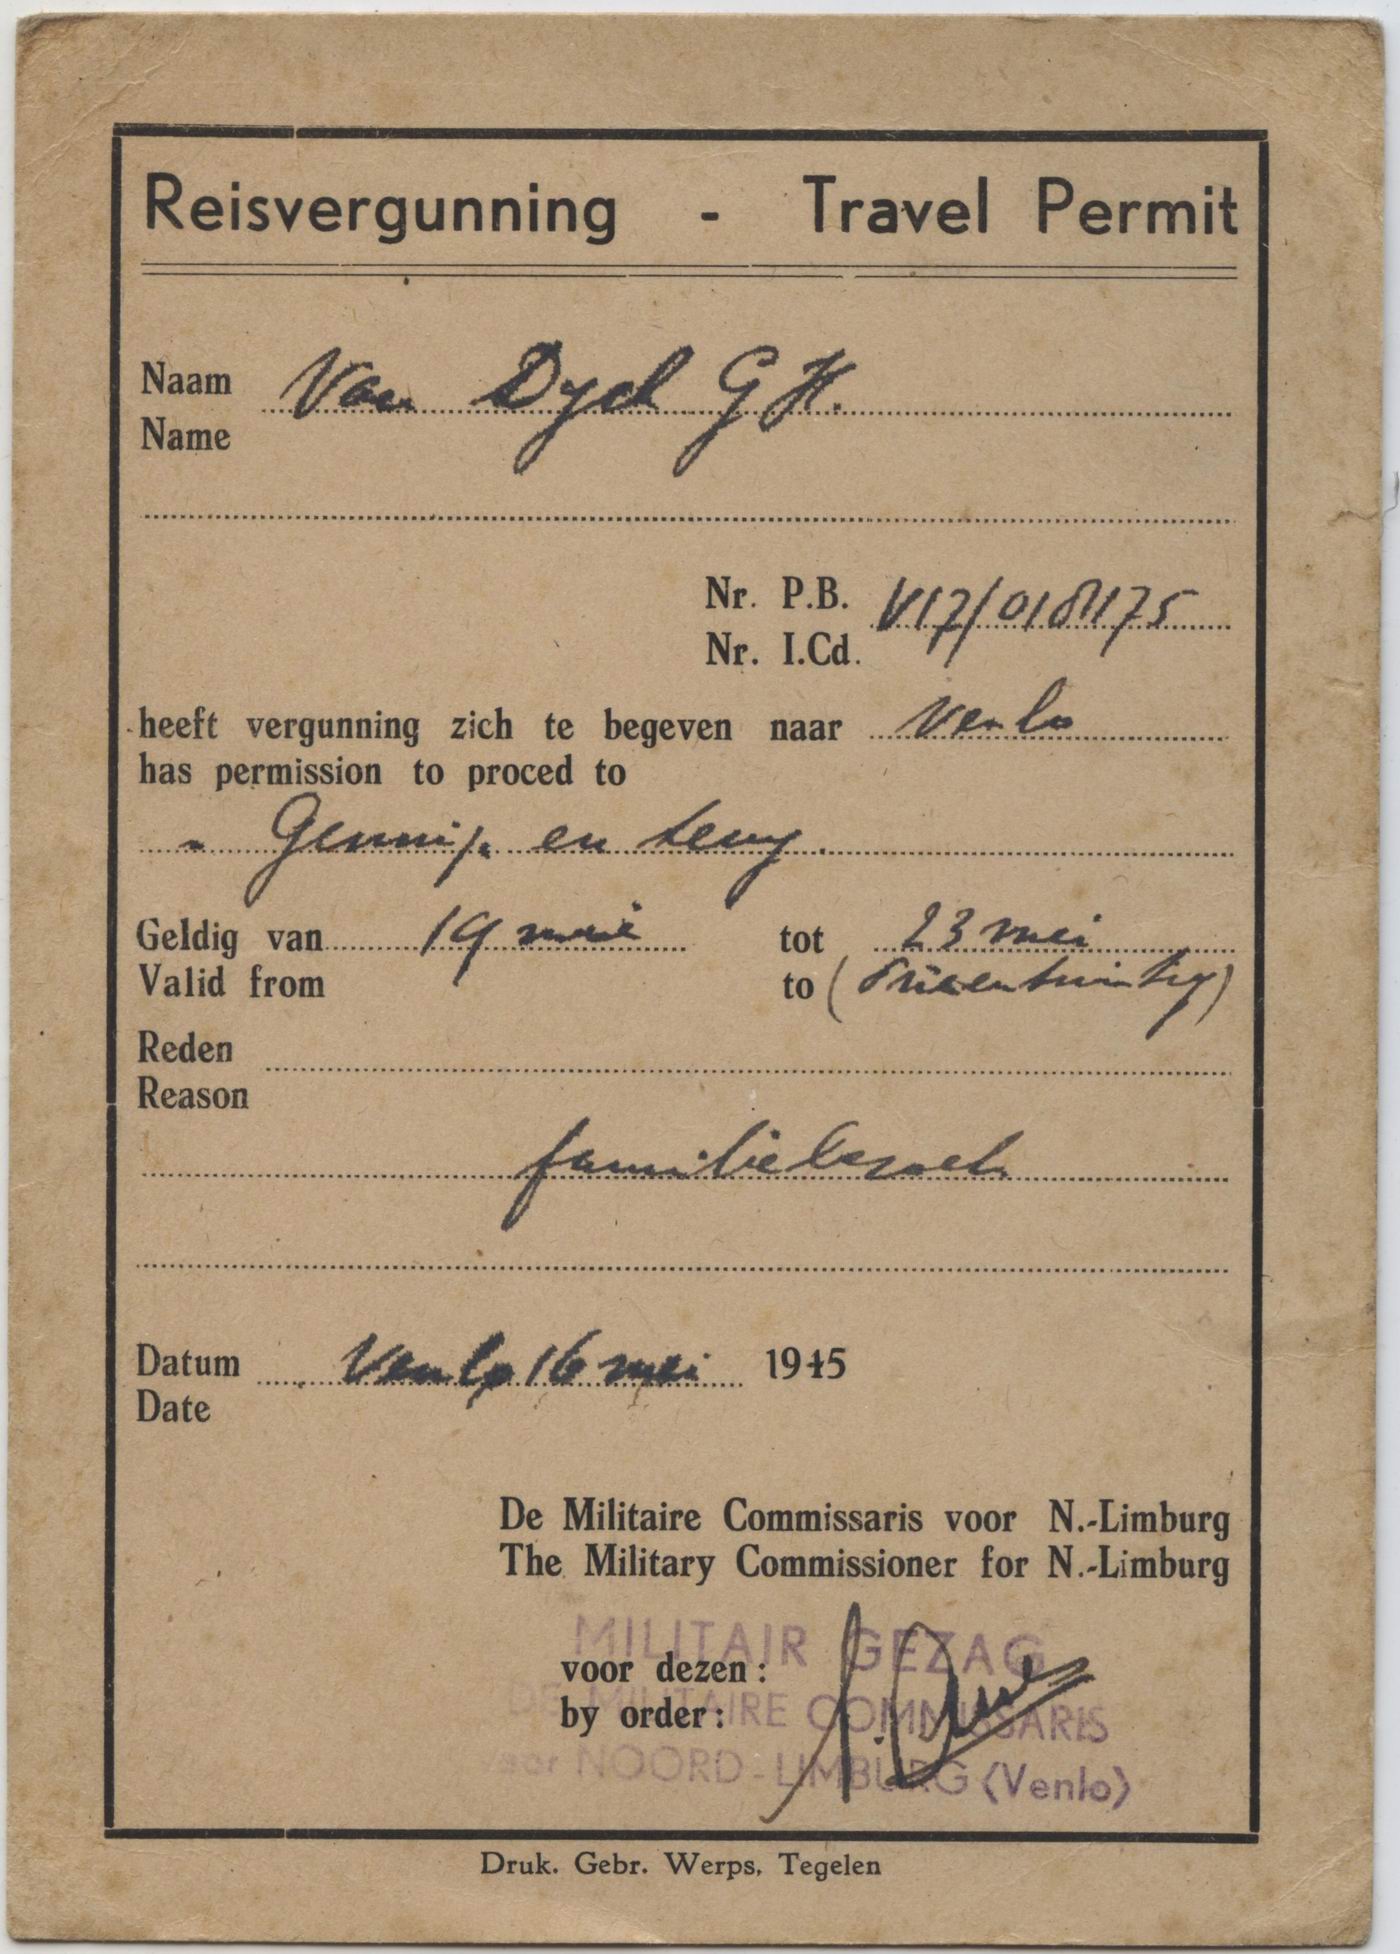 Reisvergunning - Travel Permit
Naam Van Dyck G H.
Name
Nr. P.B. V17/018175
Nr. I.Cd.
heeft vergunning zich te begeven naar Venlo
has permission to proced to
- Gennip. en terug.
Geldig van 19 mei tot 23 mei
Valid from to (drieentwintig)
Reden
Reason
familiebezoek
Datum Venlo, 16 mei 1945
Date
De Militaire Commissaris voor N.-Limburg
The Military Commissioner for N.-Limburg
MILITAIR GEZAG
voor dezen:
DE MILITAIRE COMMISSARIS
by order:
voor NOORD-LIMBURG (Venlo)
Druk. Gebr. Werps, Tegelen